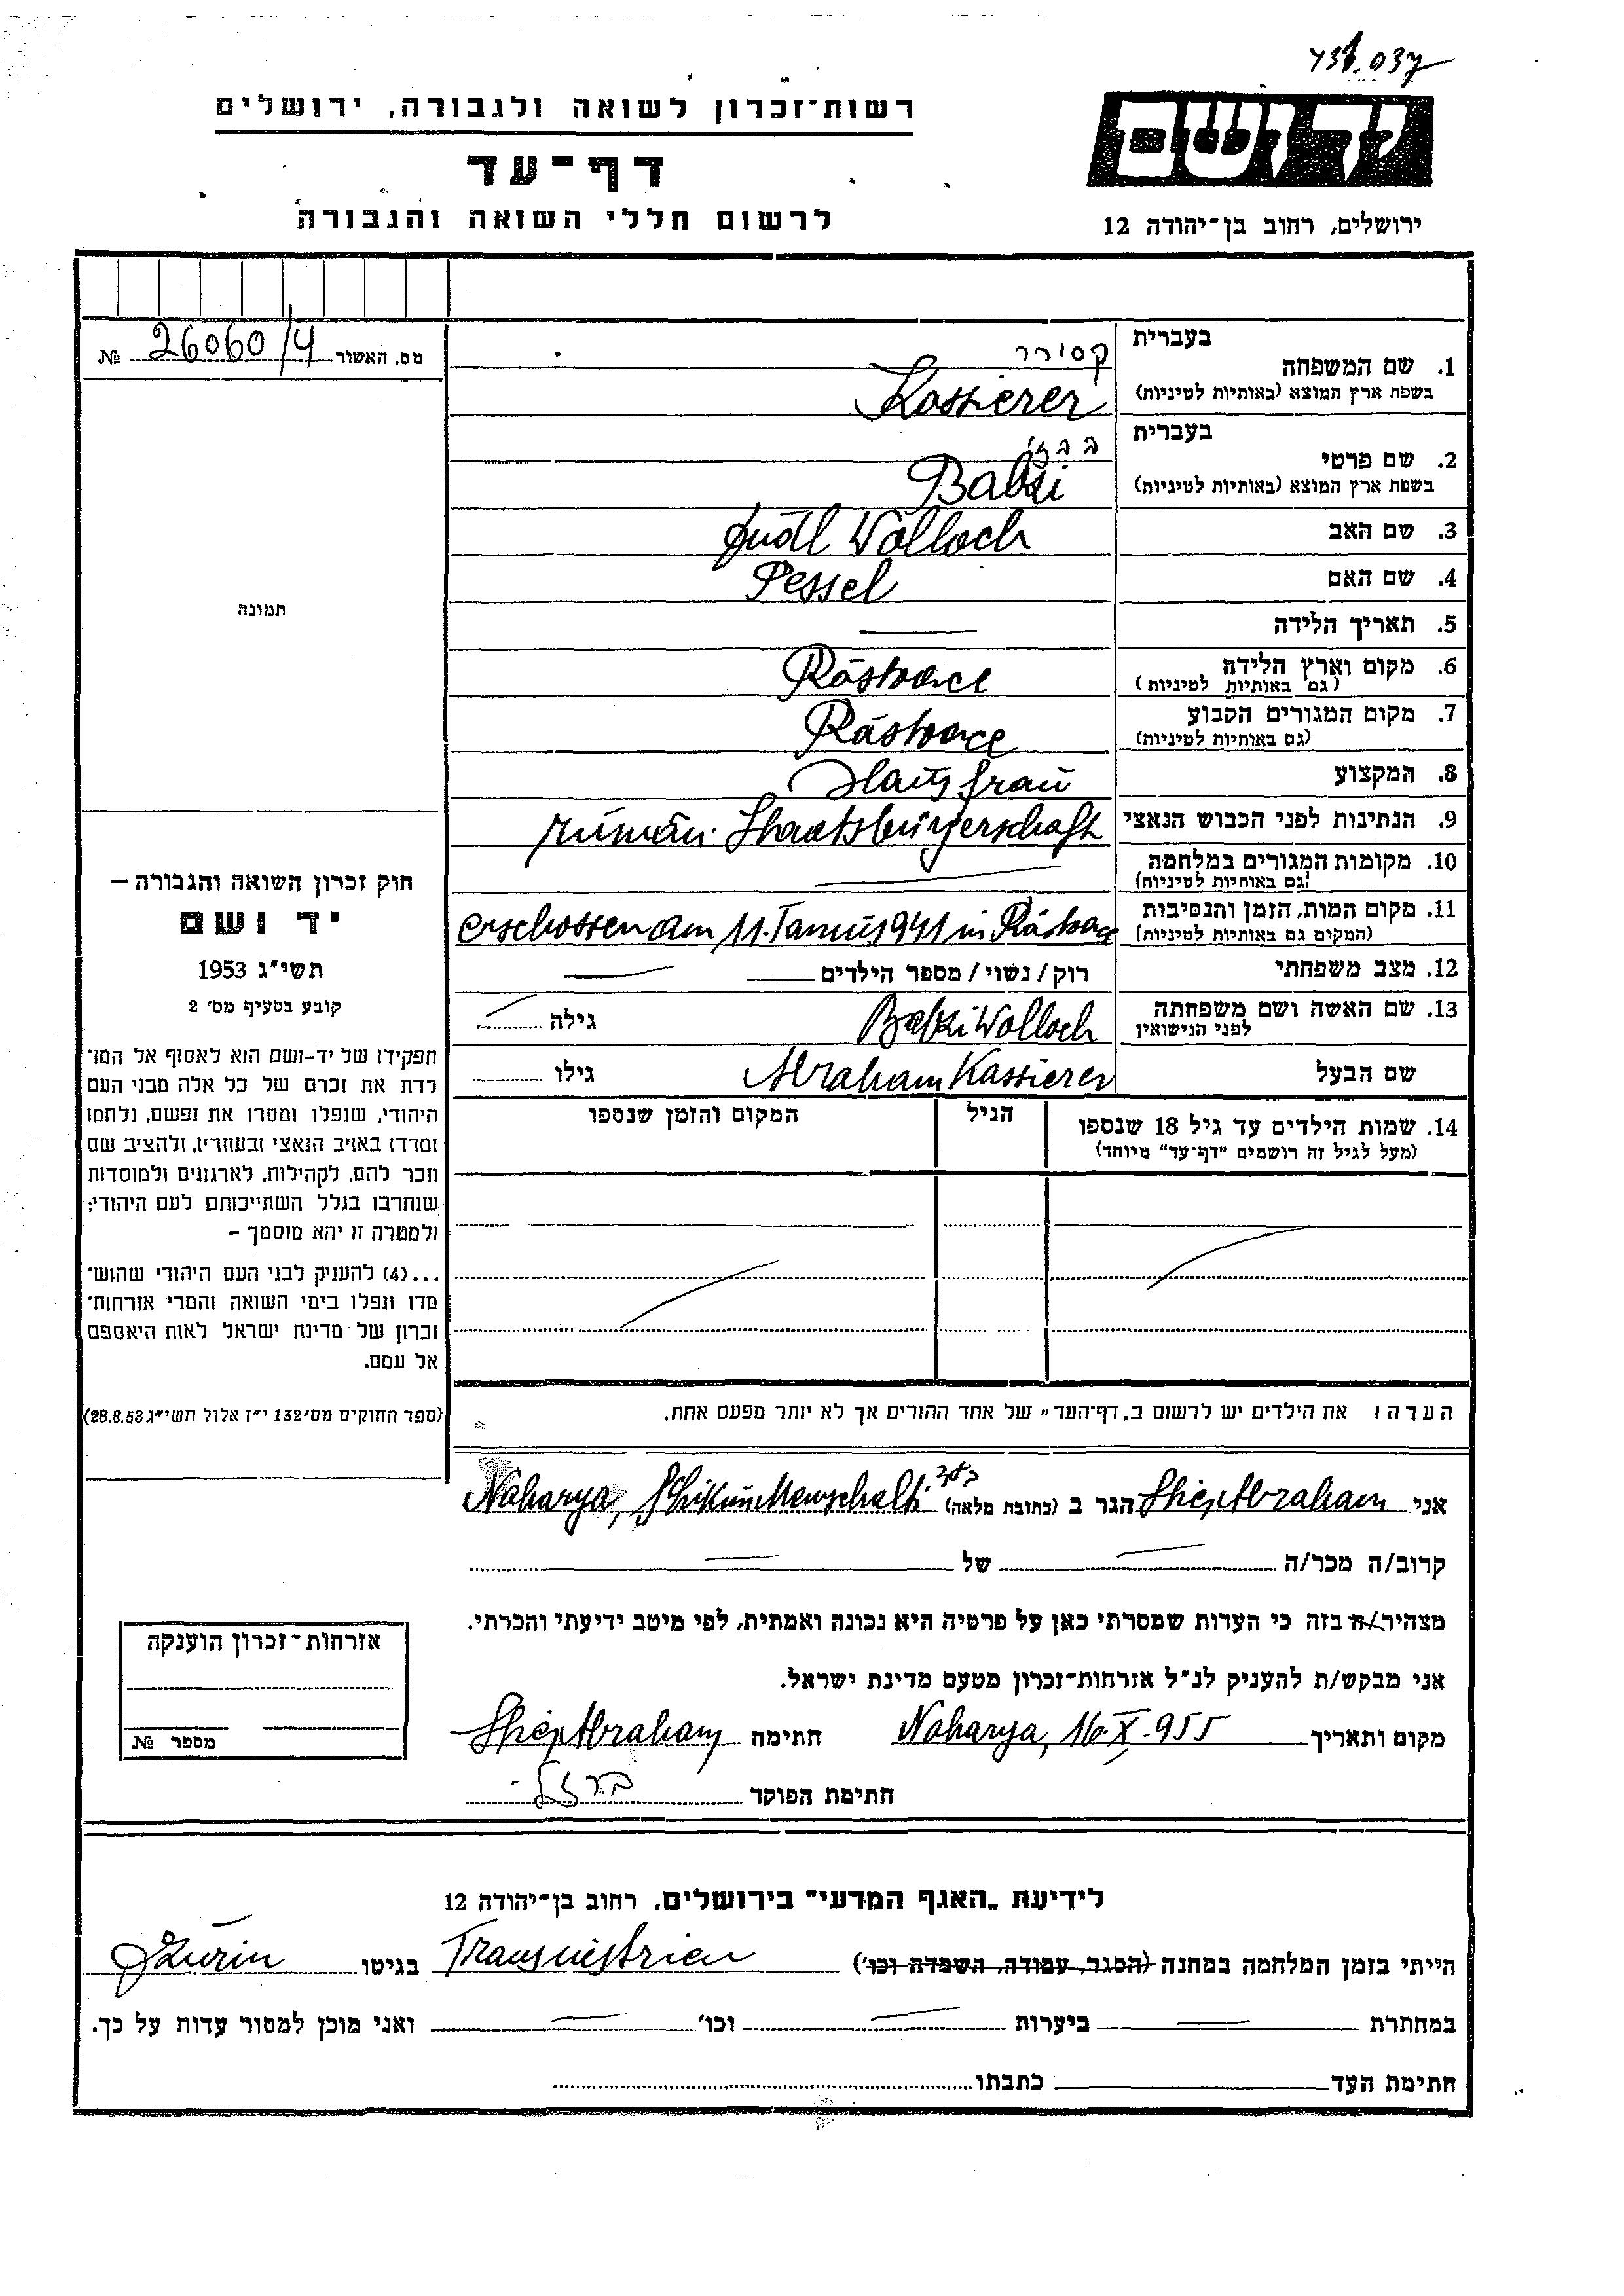 רשות־זכרון לשואה ולגבורה, ירושלים
דף־עד
לרשום חללי השואה והגבורה
ירושלים, רחוב בן־יהודה 12
מס. האשור 26060/4 №
1. שם המשפחה
בעברית קסירר
בשפת ארץ המוצא (באותיות לטיניות) Kassierer
2. שם פרטי
בעברית
בשפת ארץ המוצא (באותיות לטיניות) Babzi
3. שם האב Judl Wolloch
4. שם האם Pessel
5. תאריך הלידה —
6. מקום וארץ הלידה
(גם באותיות לטיניות) Rastoace
7. מקום המגורים הקבוע
(גם באותיות לטיניות) Rastoace
8. המקצוע Hausfrau
9. הנתינות לפני הכבוש הנאצי rumän. Staatsbürgerschaft
10. מקומות המגורים במלחמה
(גם באותיות לטיניות) —
11. מקום המות, הזמן והנסיבות
(המקום גם באותיות לטיניות) erschossen am 11. 1941 in Rastoace
12. מצב משפחתי רוק / נשוי / מספר הילדים —
13. שם האשה ושם משפחתה
לפני הנישואין Babzi Wolloch גילה
שם הבעל Abraham Kassierer גילו
14. שמות הילדים עד גיל 18 שנספו
(מעל לגיל זה רושמים "דף־עד" מיוחד)
הגיל
המקום והזמן שנספו
הערה: את הילדים יש לרשום ב„דף־העד" של אחד ההורים אך לא יותר מפעם אחת.
אני Abraham הגר ב (כתובת מלאה) Naharya,
קרוב/ה מכר/ה — של —
מצהיר/ה בזה כי העדות שמסרתי כאן על פרטיה היא נכונה ואמתית, לפי מיטב ידיעתי והכרתי.
אני מבקש/ת להעניק לנ"ל אזרחות־זכרון מטעם מדינת ישראל.
מקום ותאריך Naharya, 16.X.955 חתימה Abraham
חתימת הפוקד
תמונה
חוק זכרון השואה והגבורה —
יד ושם
תשי"ג 1953
קובע בסעיף מס' 2
תפקידו של יד-ושם הוא לאסוף אל המו־
לדת את זכרם של כל אלה מבני העם
היהודי, שנפלו ומסרו את נפשם, נלחמו
ומרדו באויב הנאצי ובעוזריו, ולהציב שם
וזכר להם, לקהילות, לארגונים ולמוסדות
שנחרבו בגלל השתייכותם לעם היהודי;
ולמטרה זו יהא מוסמך —
...(4) להעניק לבני העם היהודי שהוש־
מדו ונפלו בימי השואה והמרי אזרחות־
זכרון של מדינת ישראל לאות היאספם
אל עמם.
(ספר החוקים מס' 132 י"ז אלול תשי"ג 28.8.53)
אזרחות־זכרון הוענקה
מספר №
לידיעת „האגף המדעי" בירושלים, רחוב בן־יהודה 12
הייתי בזמן המלחמה במחנה (הסגר, עבודה, השמדה וכו') Transnistrien בגיטו Djurin
במחתרת — ביערות — וכו' — ואני מוכן למסור עדות על כך.
חתימת העד כתבתו